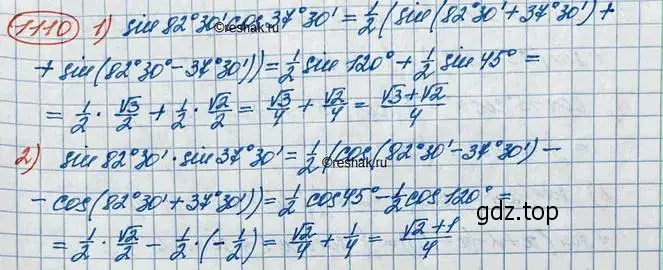 1110 1) sin 82°30' cos 37°30' = 1/2 (sin(82°30' + 37°30') +
+ sin(82°30° - 37°30')) = 1/2 sin 120° + 1/2 sin 45° =
= 1/2 · √3/2 + 1/2 · √2/2 = √3/4 + √2/4 = (√3+√2)/4
2) sin 82°30' · sin 37°30' = 1/2 (cos(82°30' - 37°30') -
- cos(82°30' + 37°30')) = 1/2 cos 45° - 1/2 cos 120° =
= 1/2 · √2/2 - 1/2 · (-1/2) = √2/4 + 1/4 = (√2+1)/4
©reshak.ru
©reshak.ru
gdz.top